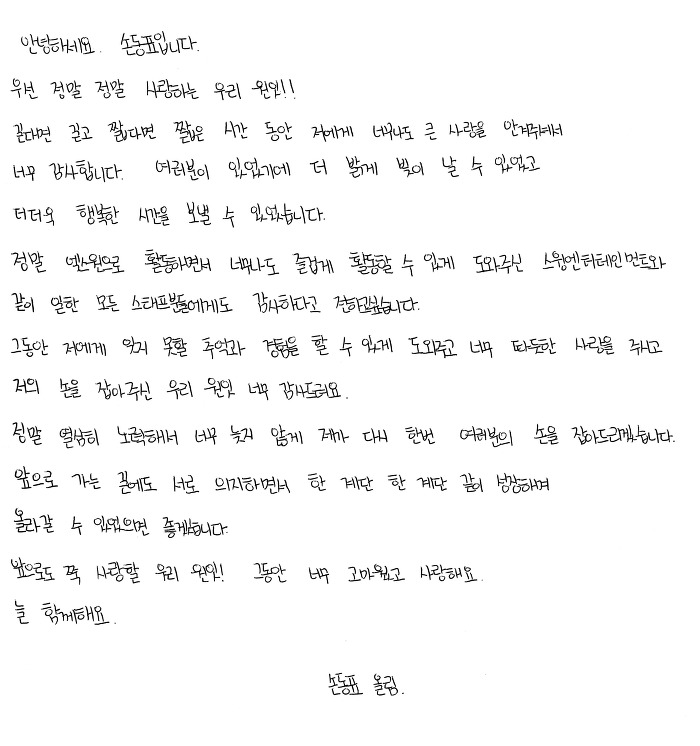 안녕하세요. 손동표입니다.
우선 정말 정말 사랑하는 우리 원잇!!
길다면 길고 짧다면 짧은 시간 동안 저에게 너무나도 큰 사랑을 안겨주셔서
너무 감사합니다. 여러분이 있었기에 더 밝게 빛이 날 수 있었고
더더욱 행복한 시간을 보낼 수 있었습니다.
정말 엑스원으로 활동하면서 너무나도 즐겁게 활동할 수 있게 도와주신 스윙엔터테인먼트와
같이 일한 모든 스태프분들에게도 감사하다고 전하고싶습니다.
그동안 저에게 잊지 못할 추억과 경험을 할 수 있게 도와주고 너무 따듯한 사랑을 주시고
저의 손을 잡아주신 우리 원잇 너무 감사드려요.
정말 열심히 노력해서 너무 늦지 않게 제가 다시 한번 여러분의 손을 잡아드리겠습니다.
앞으로 가는 길에도 서로 의지하면서 한 계단 한 계단 같이 성장하며
올라갈 수 있었으면 좋겠습니다.
앞으로도 쭉 사랑할 우리 원잇! 그동안 너무 고마웠고 사랑해요.
늘 함께해요.
손동표 올림.